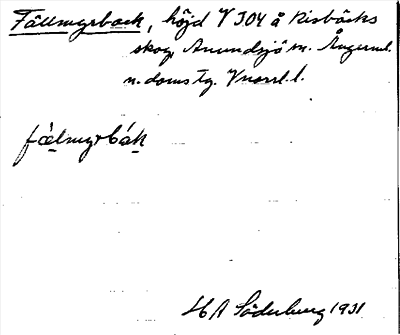 Fällmyrback, höjd V 304 å Risbäcks
skog, Anundsjö sn. Ångerml.
n. doms tg. Vnorrl. l.
fälmyrbák
HA Söderberg 1931